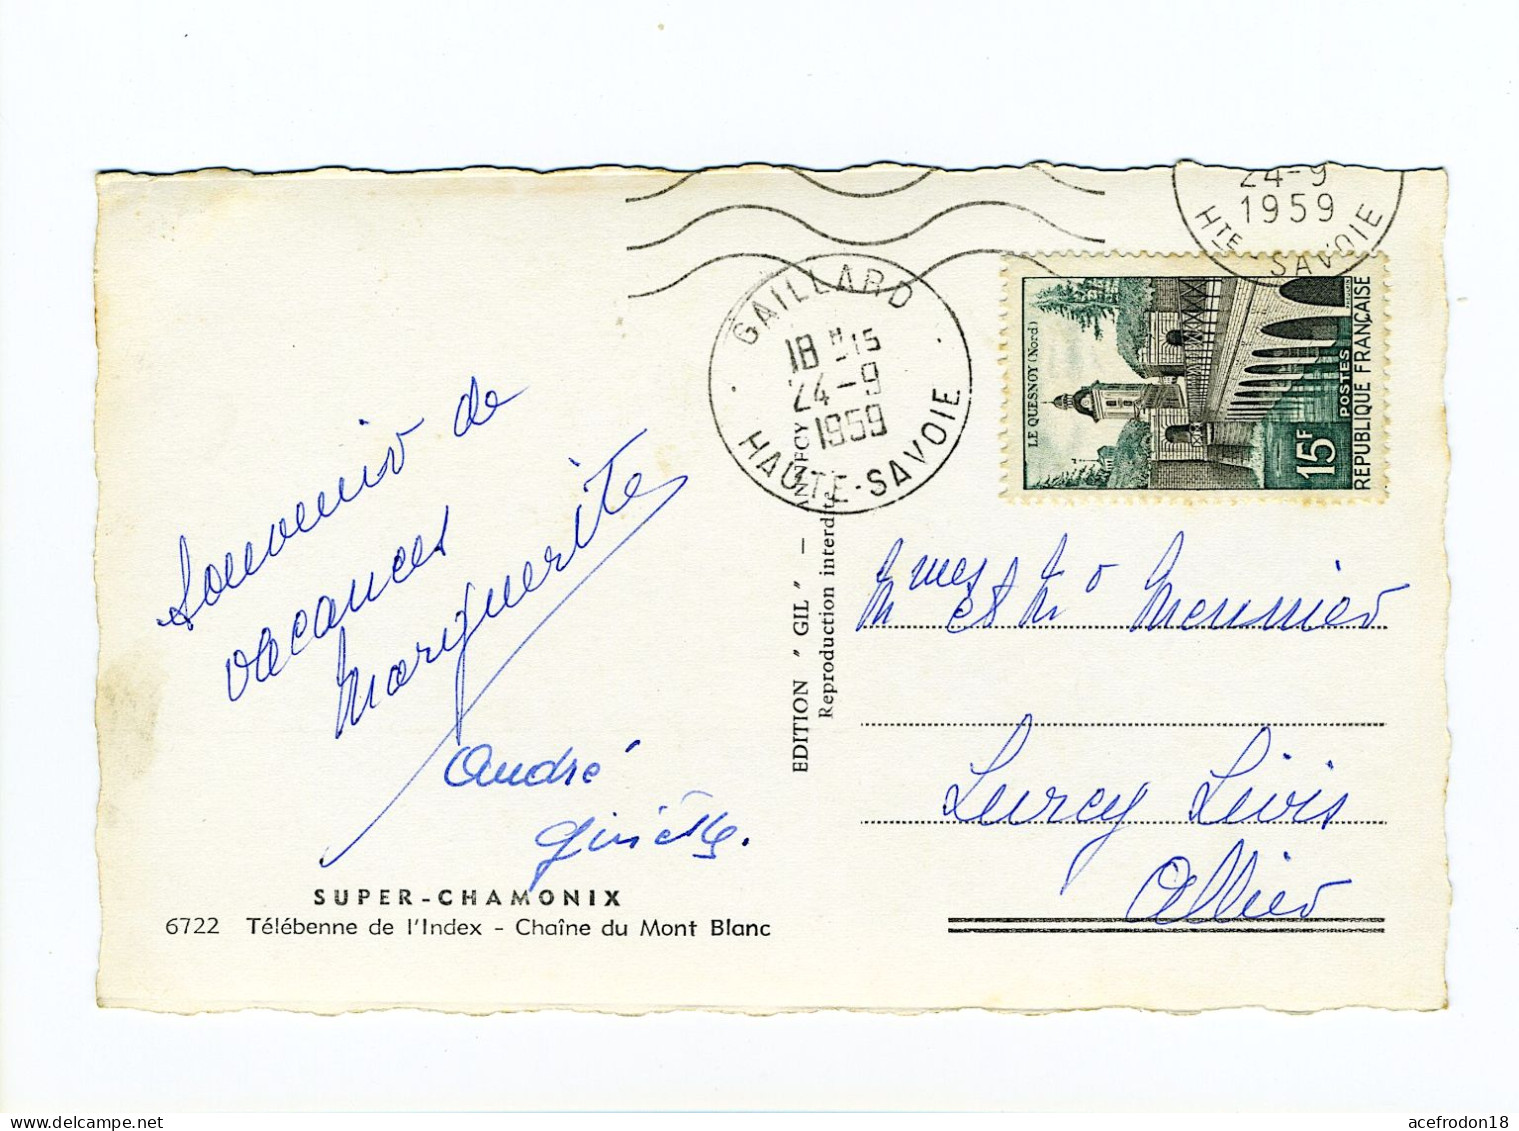 24-9
1959
HTE SAVOIE
GAILLARD
18 H 15
24-9
1959
HAUTE-SAVOIE
LE QUESNOY (Nord)
15F
POSTES
REPUBLIQUE FRANÇAISE
Souvenir de
vacances
Marguerite
André
Ginette.
EDITION " GIL " - ANNECY
Reproduction interdite
Mmes et Mr Meunier
Lurcy Lévis
Allier
SUPER-CHAMONIX
6722 Télébenne de l'Index - Chaîne du Mont Blanc
acefrodon18